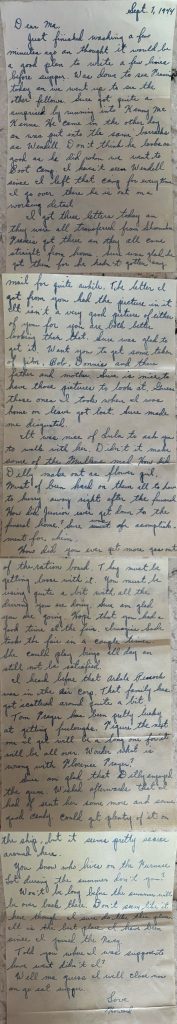 Sept. 7, 1944
Dear Ma,
Just finished washing a few
minutes ago an thought it would be
a good plan to write a few lines
before supper. Was down to see
today an we went up to see the
other fellows. Sure got quite a
surprise by running into Kenny Mc
He came in the other day
an was put into the same barracks
as Wendell. Don't think he looks as
good as he did when we went to
Boot Camp. I haven't seen Wendell
since I left that camp for every time
I go over there he is out on a
working detail.
I got three letters today an
they were all transferred from
an they all came
straight from home. Sure was glad to
get them for he hadn't gotten any
mail for quite awhile. The letter I
got from you had the picture in it
It isn't a very good picture of either
of you for you are both better
looking than that. Sure was glad to
get it. Want you to get some taken
of Bob, Bonnie and
father and mother. Sure will be nice to
have those pictures to look at. Guess
those ones I took when I was
home on leave got lost. Sure made
me disgusted.
It was nice of Lula to ask you
to walk with her. Didn't it make
some of the mad. How did
Dilly make out as flower girl.
Must of been hard on them all to have
to hurry away right after the funeral
How did Junior ever get down to the
funeral home? Sure must of
ment for him.
How did you ever get more gas out
of the ration board. They must be
getting loose with it. You must be
using quite a bit with all the
driving you are doing. Sure am glad
you are going. Hope that you had a
good time at the fair.
took the fair in a couple times.
She could play bingo all day an
still not be satisfied.
I heard before that
was in the Air Corp. That family has
got scattered around quite a bit.
Tom Prayer has been pretty lucky
at getting furloughs. Maybe the next
one I get will be a long one for it
will be all over. Wonder what is
wrong with Florence Prayer?
Sure am glad that Dilly enjoyed
the gum. Wished afterwards that I
had of sent her some more and some
good candy. Could get plenty of it on
the ship, but it seems pretty scarce
around here.
You know who lives on the
Lot during the summer don't you?
Won't be long before the summer will
be over back there. Don't seem like it
here though. I sure do like this place
it is the best place I have been
since I joined the Navy.
Told you where I was supposed to
have went didn't I?
Well Ma guess I will close now
an go eat supper.
Love